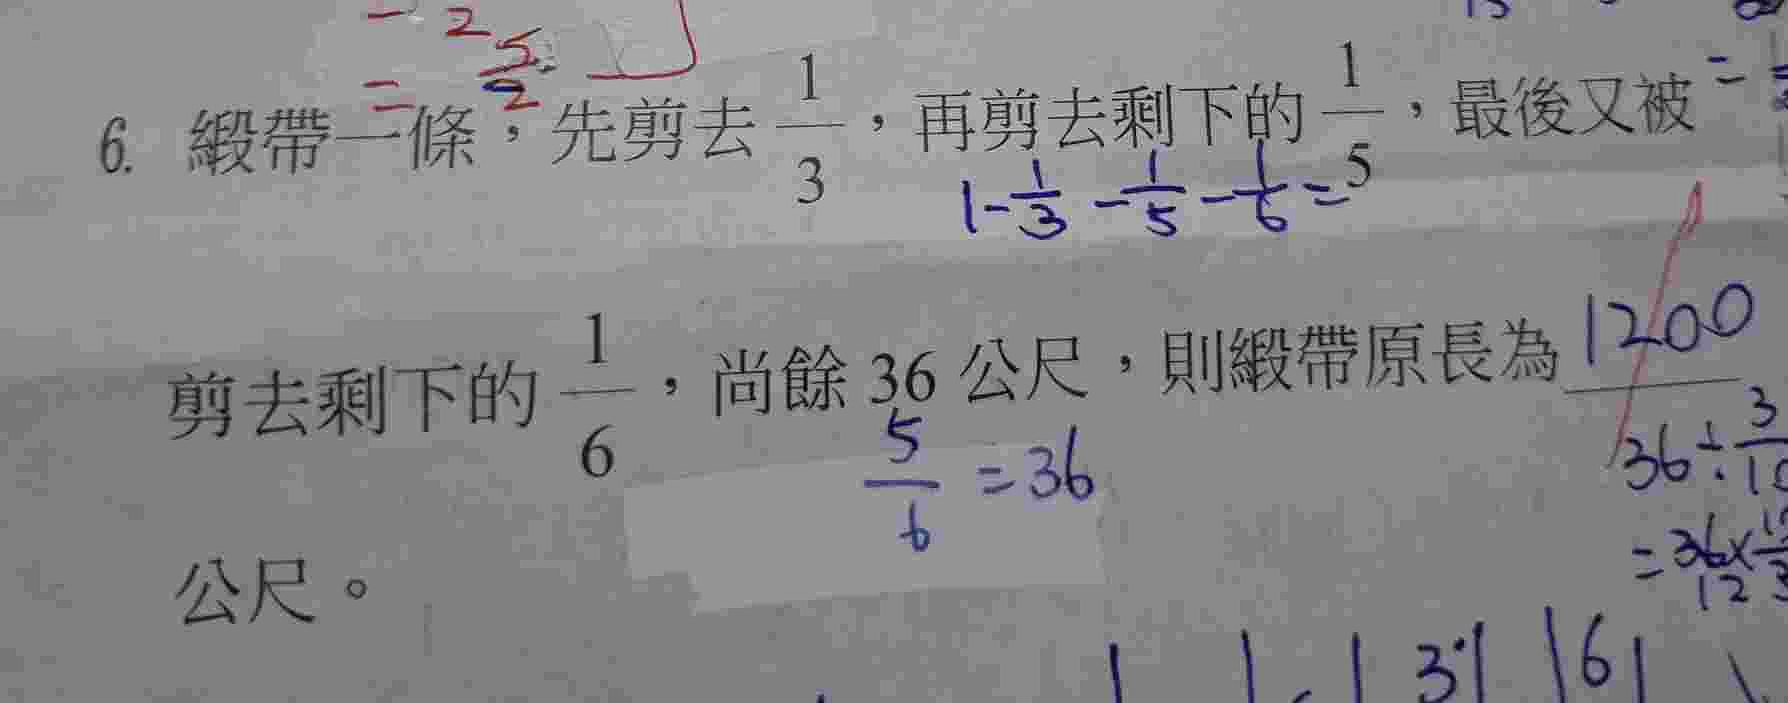 - 2
= 5/2
6. 緞帶一條，先剪去 1/3，再剪去剩下的 1/5，最後又被
1-1/3-1/5-1/6=
剪去剩下的 1/6，尚餘 36 公尺，則緞帶原長為 1200
5/6 =36
36÷3/10
=36×
12
公尺。